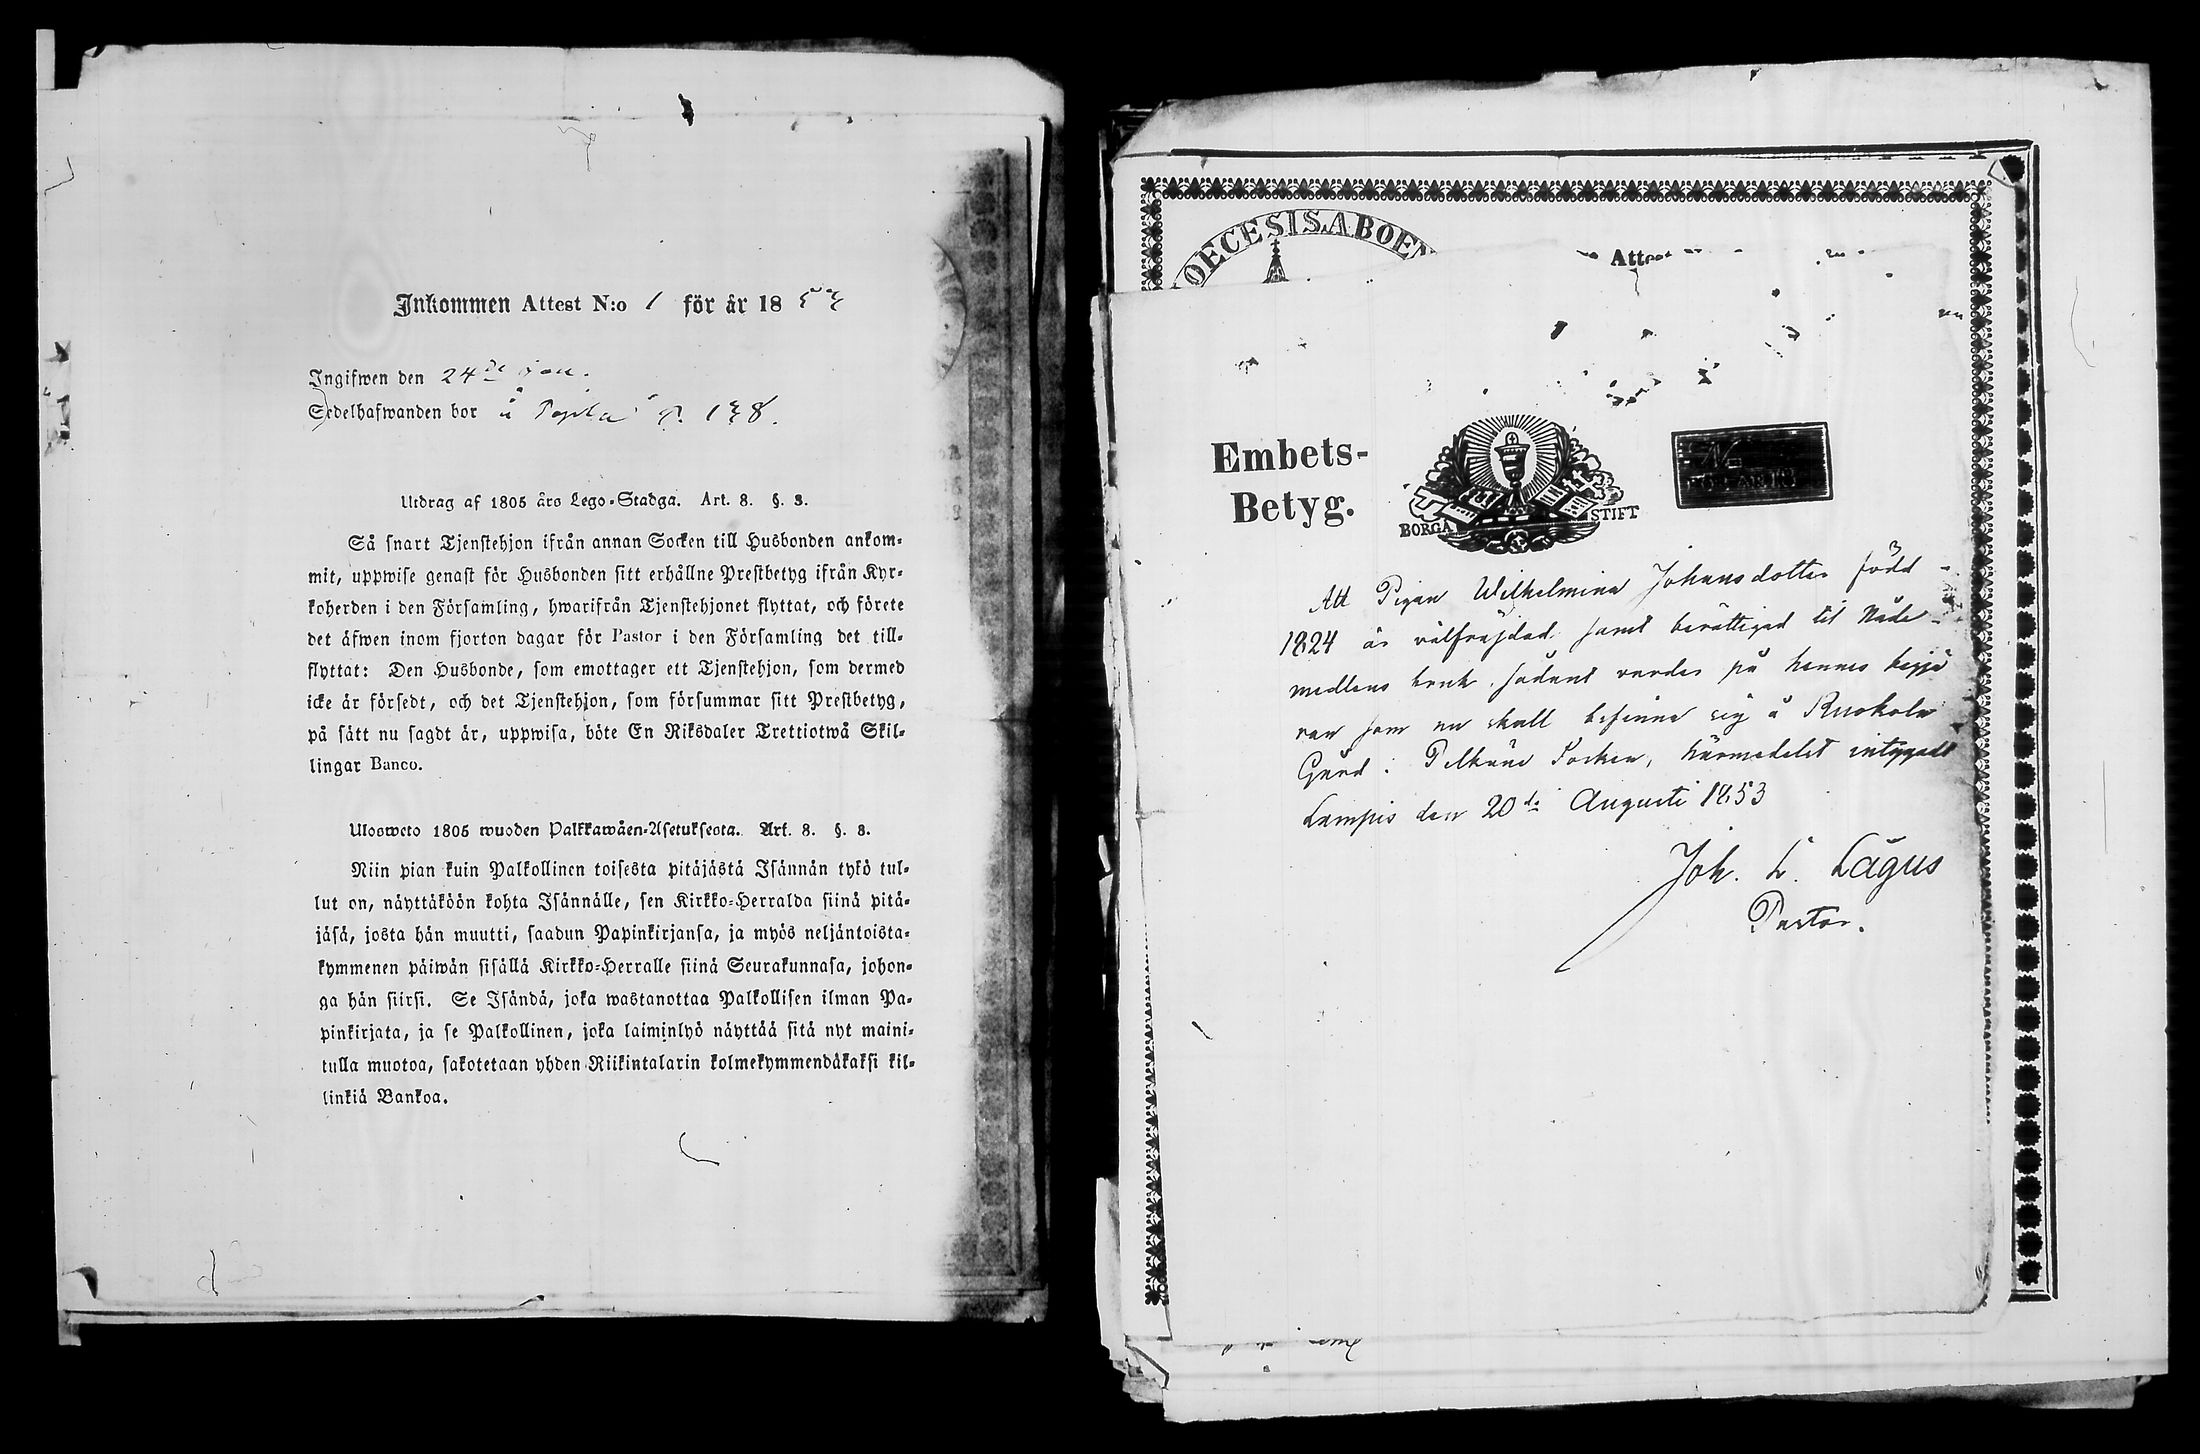 Inkommen Attest N:o 1 för år 18
Ingifwen den 24de
Sedelhafwanden bor å p. 138.
Utdrag af 1805 års Lego-Stadga. Art. 8. §. 3.
Så snart Tjenstehjon ifrån annan Socken till Husbonden ankom-
mit, uppwise genast för Husbonden sitt erhållne Prestbetyg ifrån Kyr-
koherden i den Församling, hwarifrån Tjenstehjonet flyttat, och förete
det äfwen inom fjorton dagar för Pastor i den Församling det till-
flyttat: Den Husbonde, som emottager ett Tjenstehjon, som dermed
icke är försedt, och det Tjenstehjon, som försummar sitt Prestbetyg,
på sätt nu sagdt är, uppwisa, böte En Riksdaler Trettiotwå Skil-
lingar Banco.
Ulosweto 1805 wuoden Palkkawäen-Asetuksesta. Art. 8. §. 3.
Niin pian kuin Palkollinen toisesta pitäjästä Isännän tykö tul-
lut on, näyttäköön kohta Isännälle, sen Kirkko-Herralda siinä pitä-
jäsä, josta hän muutti, saadun Papinkirjansa, ja myös neljäntoista-
kymmenen päiwän sisällä Kirkko-Herralle siinä Seurakunnasa, johon-
ga hän siirsi. Se Isändä, joka wastanottaa Palkollisen ilman Pa-
pinkirjata, ja se Palkollinen, joka laiminlyö näyttää sitä nyt maini-
tulla muotoa, sakotetaan yhden Riikintalarin kolmekymmendäkaksi kil-
linkiä Bankoa.
OECESIS.ABOEN
Embets-
Betyg.
BORGÅ STIFT
No
Att Pigan Wilhelmina Johansdotter född
1824 är välfräjdad samt berättigad til Nåde-
medlens bruk sådant varder på hennes begjä
ran som nu skall befinna sig å Ruokola
Gård i Pelkäne Socken, härmedelst intygadt
Lampis den 20de Augusti 1853
Joh. L. Lagus
Pastor.